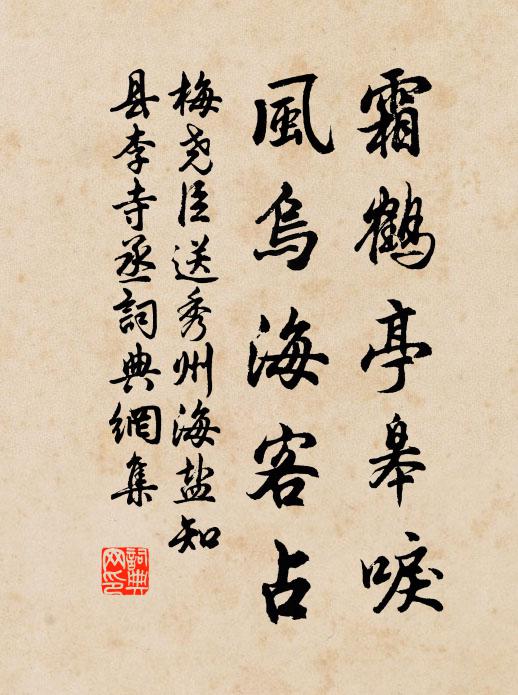 霜鶴亭皋唳
風烏海客占
梅尧臣送秀州海盐知
县李寺丞詞典網集
詞典網印